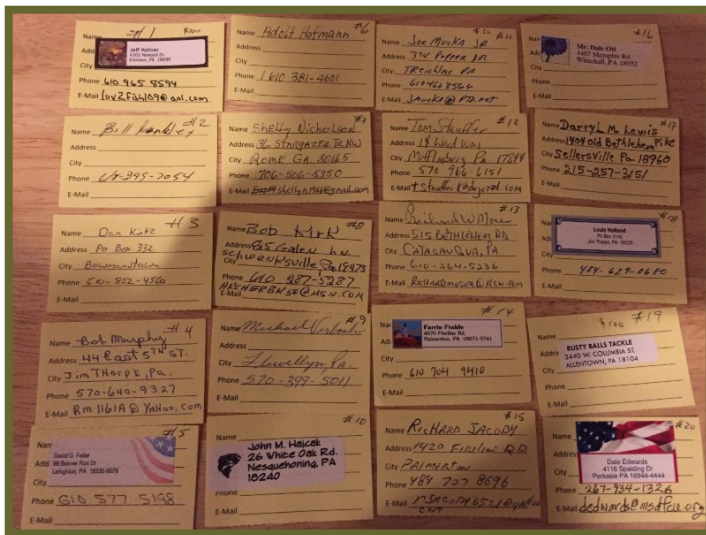 #1 $100
Name
Jeff Ketner
Address
City
Phone 610 965 8594
E-Mail luv2fish109@aol.com
Bill #2
Name
Address
City
Phone 395-7054
E-Mail
#3
Name Dan Kutz
Address Po Box 332
City Bowmanstown
Phone 610-852-4560
E-Mail
#4
Name Bob Murphy
Address 44 East 5TH ST.
City Jim THorpE, Pa.
Phone 570-640-9327
E-Mail Rm1161A@YaHoo.com
#5
David G.
89 Beaver Run Dr
Lehighton, PA 18235-9579
City
Phone 610 577 5198
E-Mail
#6
Name Adolf Hofmann
Address
City
Phone 1 610 381-4601
E-Mail
#7
Name Shelly Nicholson
Address 36 Stargazer Te NW
City Rome GA. 30165
Phone 706-506-5350
E-Mail
#8
Name Bob Kirk
Address Galen Ln.
City Schwenksville Pa 19473
Phone 610 287-5287
E-Mail ARCHERBK56@MSN.COM
#9
Name Michael
Address
City Llewellyn Pa.
Phone 570-399-5011
E-Mail
#10
Name
John M. Hajcak
26 White Oak Rd.
Nesquehoning, PA
18240
Phone
E-Mail
$50 #11
Name Joe Mucka JR
Address
City Trexler PA
Phone 6104628566
E-Mail Jmucka@PTD.net
#12
Name Tom Stauffer
Address 14 West
City Mifflinburg Pa 17844
Phone 570 966 6151
E-Mail
#13
Name Richard W Moser
Address 515 BETHLEHEM RD
City CATASAUQUA, PA
Phone 610-264-5236
E-Mail RICHARDMOSER@RCN.com
#14
Ferris Fraible
4076 Fireline Rd.
Palmerton, PA 18071-5741
City
Phone 610 704 9410
E-Mail
#15
Name RicHARD JACOBY
Address 1420 Fireline RD
City PALMERTON
Phone 484 707 8696
E-Mail
#16
Mr. Dale Ott
4487 Memphis Rd.
Whitehall, PA 18052
City
Phone
E-Mail
#17
Name Darryl M. Lewis
Address 1404 old Bethlehem PIKE
City Sellersville Pa. 18960
Phone 215-257-3151
E-Mail
#18
Louis Holland
PO Box
Jim Thorpe, PA 18229
Phone 484-629-0680
E-Mail
$100 #19
Name
RUSTY BALLS TACKLE
2440 W. COLUMBIA ST.
ALLENTOWN, PA 18104
Phone
E-Mail
#20
Dale Edwards
4116 Spalding Dr
Perkasie PA 18944-4444
Phone 267-934-1326
E-Mail dedwards@msdfcu.org